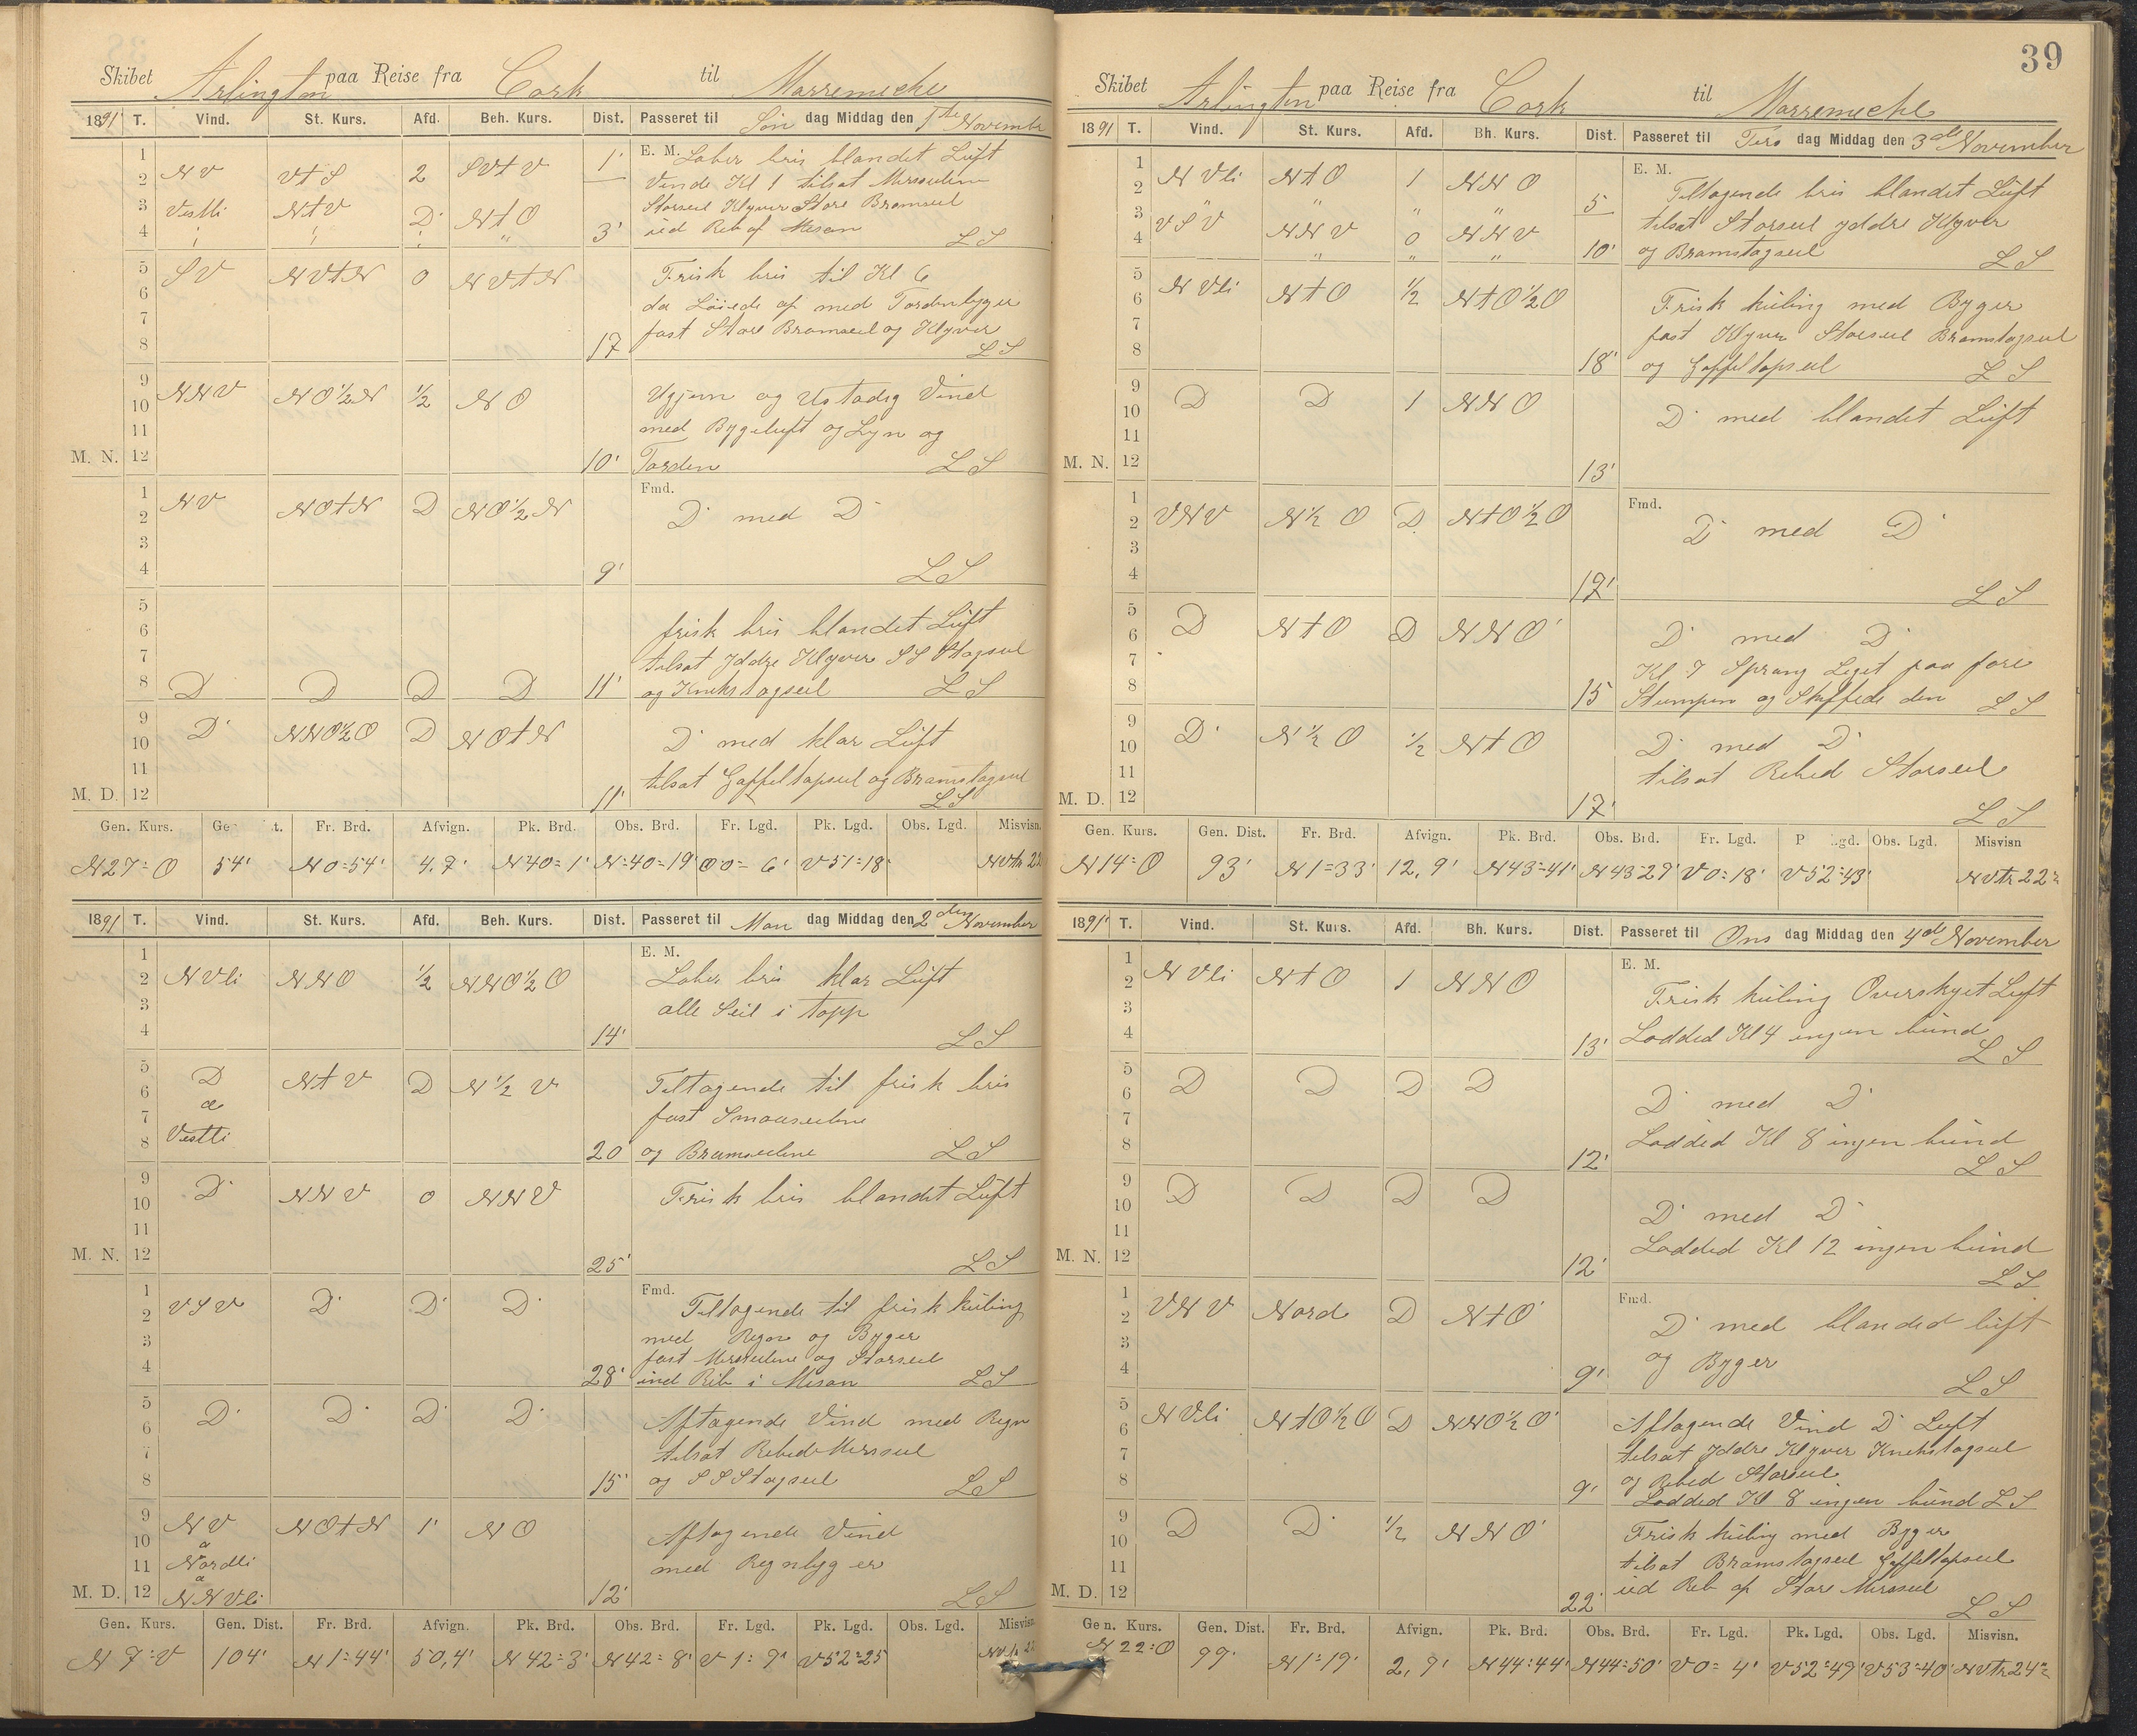 Skibet Arlington paa Reise fra Cork til Marremiche
1891 T. Vind. St. Kurs. Afd. Beh. Kurs. Dist. Passeret til Søn dag Middag den 1ste November
1 2 3 4 5 6 7 8 9 10 11 M. N. 12
E. M. Laber bris blandet Luft
NV VtS 2 SVtV 1' Vende Kl 1 tilsat Merseilene
Vestli NtV D NtO Storseil Klyver Store Bramseil
" " " " 3' ud Reb af Mesan LS
SV NVtN 0 NVtN Frisk bris til Kl 6
da Løiede af med Tordenbyger
17 fast Store Bramseil og Klyver
LS
NNV NO½N ½ NO Ugjevn og Ustadig Vind
med Bygeluft og Lyn og
10' Torden LS
1 2 3 4 5 6 7 8 9 10 11 M. D. 12
Fmd.
NV NOtN D NO½N D med D
9' LS
frisk bris blandet Luft
tilsat Yddre Klyver SS Stagseil
D D D D 11' og Knekstagseil LS
D NNO½O D NOtN D med klar Luft
tilsat Gaffeltopseil og Bramstagseil
11' LS
Gen. Kurs. Ge t. Fr. Brd. Afvign. Pk. Brd. Obs. Brd. Fr. Lgd. Pk. Lgd. Obs. Lgd. Misvisn.
N27=O 54' N0=54' 4.7' N40=1' N=40=19' O0=6' V51=18' NVtr 22
1891 T. Vind. St. Kurs. Afd. Beh. Kurs. Dist. Passeret til Man dag Middag den 2den November
1 2 3 4 5 6 7 8 9 10 11 M. N. 12
E. M.
NVli NNO ½ NNO½O Laber bris klar Luft
alle Seil i topp
14' LS
D NtV D N½V Tiltagende til frisk bris
a fast Smaaseilene
Vestli 20 og Bramseilene LS
D NNV 0 NNV Frisk bris blandet Luft
25' LS
1 2 3 4 5 6 7 8 9 10 11 M. D. 12
Fmd.
VSV D D D Tiltagende til frisk kuling
med Regn og Byger
fast Merseilene og Storseil
28' ind Reb i Mesan LS
D D D D Aftagende Vind med Regn
tilsat Rebede Merseil
15' og SS Stagseil LS
NV NOtN 1' NO Aftagende Vind
a Nordli med Regnbyger
a NNVli 12' LS
Gen. Kurs. Gen. Dist. Fr. Brd. Afvign. Pk. Brd. Obs. Brd. Fr. Lgd. Pk. Lgd. Obs. Lgd. Misvisn
N7=V 104' N1=44' 50,4' N42=3' N42=8' V1=9' V52=25
39
Skibet Arlington paa Reise fra Cork til Marremiche
1891 T. Vind. St. Kurs. Afd. Bh. Kurs. Dist. Passeret til Tirs dag Middag den 3de November
1 2 3 4 5 6 7 8 9 10 11 M. N. 12
E. M.
NVli NtO 1 NNO Tiltagende bris blandet Luft
" " " " 5 tilsat Storseil yddre Klyver
VSV NNV 0 NNV 10' og Bramstagseil LS
NVli NtO ½ NtO½O Frisk kuling med Byger
fast Klyver Storseil Bramstagseil
18' og Gaffeltopseil LS
D D 1 NNO D med blandet Luft
13'
1 2 3 4 5 6 7 8 9 10 11 M. D. 12
Fmd.
VNV N½O D NtO½O D med D
12' LS
D NtO D NNO D med D
Kl 7 Sprang Liget paa fore
15 Stumpen og Skiftede den LS
D N½O ½ NtO D med D
tilsat Rebed Storseil
17' LS
Gen. Kurs. Gen. Dist. Fr. Brd. Afvign. Pk. Brd. Obs. Brd. Fr. Lgd. P gd. Obs. Lgd. Misvisn
N14=O 93' N1=33' 12,9' N43=41' N43 29' V0=18' V52=43' NVtr 22=
1891 T. Vind. St. Kurs. Afd. Bh. Kurs. Dist. Passeret til Ons dag Middag den 4de November
1 2 3 4 5 6 7 8 9 10 11 M. N. 12
E. M.
NVli NtO 1 NNO Frisk kuling Overskyet Luft
13' Lodded Kl 4 ingen bund
LS
D D D D D med D
12' Lodded Kl 8 ingen bund
LS
D D D D D med D
12' Lodded Kl 12 ingen bund
LS
1 2 3 4 5 6 7 8 9 10 11 M. D. 12
Fmd.
VNV Nord D NtO D med blanded luft
9' og Byger LS
NVli NtO½O D NNO½O Aftagende Vind D Luft
tilsat Yddre Klyver Knekstagseil
9' og Rebed Storseil
Lodded Kl 8 ingen bund LS
D D ½ NNO Frisk kuling med Byger
tilsat Bramstagseil Gaffeltopseil
22' ud Reb af Store Merseil
LS
Gen. Kurs. Gen. Dist. Fr. Brd. Afvign. Pk. Brd. Obs. Brd. Fr. Lgd. Pk. Lgd. Obs. Lgd. Misvisn.
N22=O 99' N1=19' 2,9' N44=44' N44=50' V0=4' V52=49' V53=40' NVtr 24=